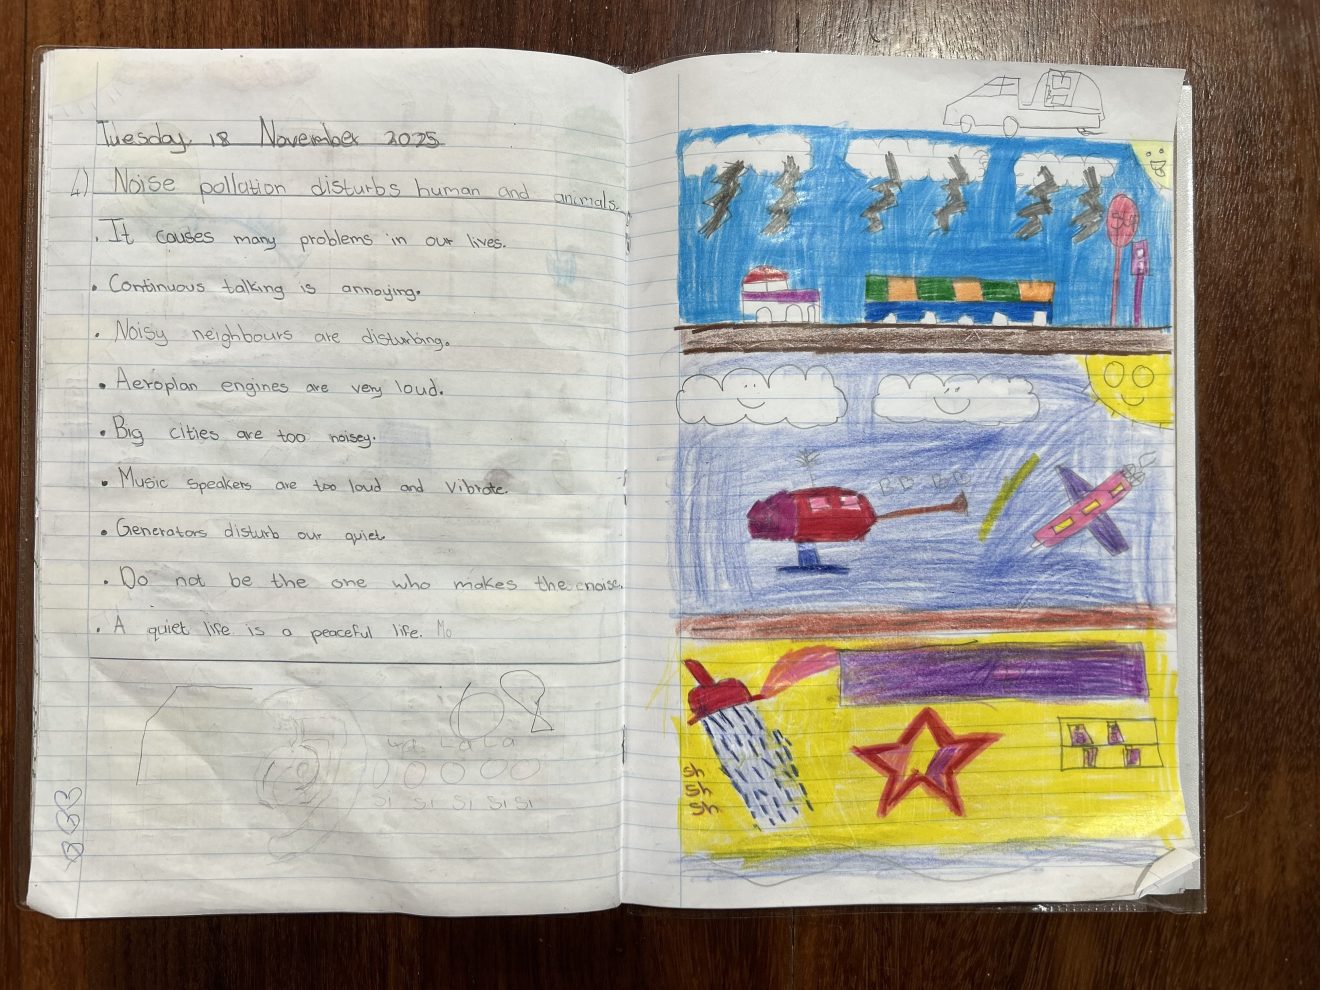 Tuesday 18 November 2025
4) Noise pollution disturbs human and animals.
. It causes many problems in our lives.
. Continuous talking is annoying.
. Noisy neighbours are disturbing.
. Aeroplan engines are very loud.
. Big cities are too noisey.
. Music speakers are too loud and vibrate.
. Generators disturb our quiet.
. Do not be the one who makes the noise.
. A quiet life is a peaceful life. Mo
La La La
Si Si Si Si Si
Sh
Sh
Sh